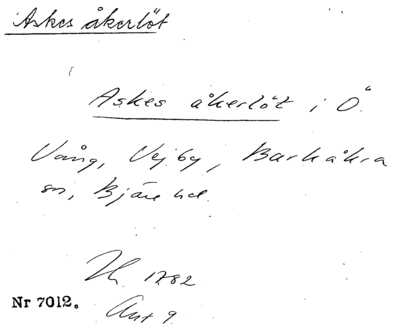 Askes åkerlöt
Askes åkerlöt i Ö.
Vång, Vejby, Barkåkra
sn, Bjäre hd.
1782
Nr 7012. Akt 9